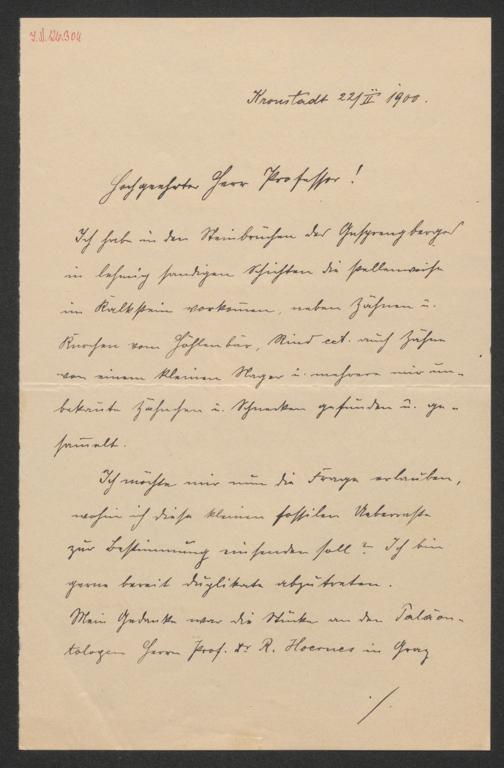 J.N. 126.304
Kronstadt 22/II 1900.
Hochgeehrter Herr Professor!
Ich habe in den Steinbrüchen des Gesprengberges
in lehmig sandigen Schichten die stellenweise
im Kalkstein vorkom̄en, neben Zähnen u.
Knochen vom Höhlenbär, Rind ect. auch Zähne
von einem kleinen Nager u. mehrere mir un-
bekannte Zähnchen u. Schnecken gefunden u. ge-
sam̄elt.
Ich möchte mir nun die Frage erlauben,
wohin ich diese kleinen fossilen Ueberreste
zur Bestimmung einsenden soll? Ich bin
gerne bereit Duplikate abzutreten.
Mein Gedanke war die Stücke an den Paläon-
tologen Herrn Prof. Dr R. Hoernes in Graz
./.